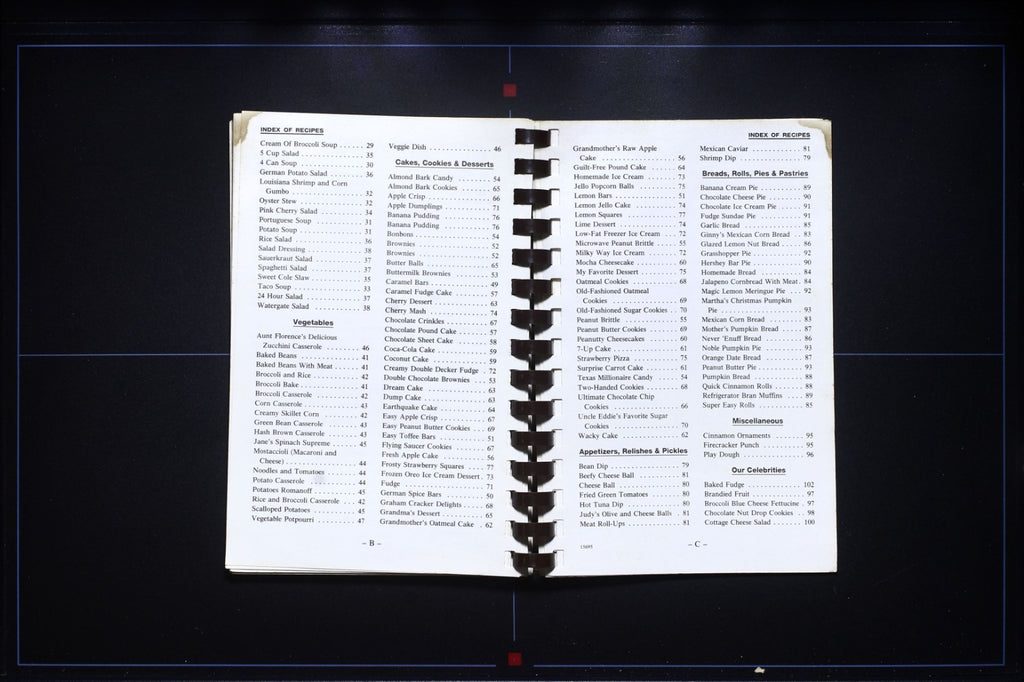 INDEX OF RECIPES
Cream Of Broccoli Soup ...... 29
5 Cup Salad ............... 35
4 Can Soup ............... 30
German Potato Salad ........ 36
Louisiana Shrimp and Corn
Gumbo .................. 32
Oyster Stew ............... 32
Pink Cherry Salad .......... 34
Portuguese Soup ........... 31
Potato Soup ............... 31
Rice Salad ................ 36
Salad Dressing ............. 38
Sauerkraut Salad ........... 37
Spaghetti Salad ............ 37
Sweet Cole Slaw ........... 35
Taco Soup ................ 33
24 Hour Salad ............. 37
Watergate Salad ............ 38
Vegetables
Aunt Florence's Delicious
Zucchini Casserole ........ 46
Baked Beans .............. 41
Baked Beans With Meat ...... 41
Broccoli and Rice .......... 42
Broccoli Bake ............. 41
Broccoli Casserole .......... 42
Corn Casserole ............. 43
Creamy Skillet Corn ........ 42
Green Bean Casserole ....... 43
Hash Brown Casserole ....... 43
Jane's Spinach Supreme ...... 45
Mostaccioli (Macaroni and
Cheese) ................. 44
Noodles and Tomatoes ....... 44
Potato Casserole ............ 44
Potatoes Romanoff .......... 45
Rice and Broccoli Casserole ... 42
Scalloped Potatoes .......... 45
Vegetable Potpourri ......... 47
Veggie Dish ............... 46
Cakes, Cookies & Desserts
Almond Bark Candy ......... 54
Almond Bark Cookies ........ 65
Apple Crisp ............... 66
Apple Dumplings ........... 71
Banana Pudding ............ 76
Banana Pudding ............ 76
Bonbons .................. 54
Brownies ................. 52
Brownies ................. 52
Butter Balls ............... 65
Buttermilk Brownies ........ 53
Caramel Bars .............. 49
Caramel Fudge Cake ........ 57
Cherry Dessert ............. 63
Cherry Mash .............. 74
Chocolate Crinkles .......... 67
Chocolate Pound Cake ....... 57
Chocolate Sheet Cake ........ 58
Coca-Cola Cake ............ 59
Coconut Cake .............. 59
Creamy Double Decker Fudge . 72
Double Chocolate Brownies ... 53
Dream Cake ............... 63
Dump Cake ............... 63
Earthquake Cake ........... 64
Easy Apple Crisp ........... 67
Easy Peanut Butter Cookies ... 69
Easy Toffee Bars ........... 51
Flying Saucer Cookies ....... 67
Fresh Apple Cake ........... 56
Frosty Strawberry Squares .... 77
Frozen Oreo Ice Cream Dessert . 73
Fudge .................... 71
German Spice Bars .......... 50
Graham Cracker Delights ..... 68
Grandma's Dessert .......... 65
Grandmother's Oatmeal Cake .. 62
– B –
INDEX OF RECIPES
Grandmother's Raw Apple
Cake ................... 56
Guilt-Free Pound Cake ....... 64
Homemade Ice Cream ........ 73
Jello Popcorn Balls .......... 75
Lemon Bars ............... 51
Lemon Jello Cake ........... 74
Lemon Squares ............. 77
Lime Dessert .............. 74
Low-Fat Freezer Ice Cream ... 72
Microwave Peanut Brittle ..... 55
Milky Way Ice Cream ....... 72
Mocha Cheesecake .......... 60
My Favorite Dessert ......... 75
Oatmeal Cookies ........... 68
Old-Fashioned Oatmeal
Cookies ................. 69
Old-Fashioned Sugar Cookies .. 70
Peanut Brittle .............. 55
Peanut Butter Cookies ....... 69
Peanutty Cheesecakes ........ 60
7-Up Cake ................ 61
Strawberry Pizza ........... 75
Surprise Carrot Cake ........ 61
Texas Millionaire Candy ..... 54
Two-Handed Cookies ........ 68
Ultimate Chocolate Chip
Cookies ................. 66
Uncle Eddie's Favorite Sugar
Cookies ................. 70
Wacky Cake .............. 62
Appetizers, Relishes & Pickles
Bean Dip ................. 79
Beefy Cheese Ball .......... 81
Cheese Ball ............... 80
Fried Green Tomatoes ....... 80
Hot Tuna Dip ............. 80
Judy's Olive and Cheese Balls .. 81
Meat Roll-Ups ............. 81
Mexican Caviar ............ 81
Shrimp Dip ............... 79
Breads, Rolls, Pies & Pastries
Banana Cream Pie .......... 89
Chocolate Cheese Pie ........ 90
Chocolate Ice Cream Pie ..... 91
Fudge Sundae Pie .......... 91
Garlic Bread .............. 85
Ginny's Mexican Corn Bread .. 83
Glazed Lemon Nut Bread ..... 86
Grasshopper Pie ............ 92
Hershey Bar Pie ............ 90
Homemade Bread ........... 84
Jalapeno Cornbread With Meat . 84
Magic Lemon Meringue Pie ... 92
Martha's Christmas Pumpkin
Pie .................... 93
Mexican Corn Bread ........ 83
Mother's Pumpkin Bread ..... 87
Never 'Enuff Bread ......... 86
Noble Pumpkin Pie ......... 93
Orange Date Bread ......... 87
Peanut Butter Pie ........... 93
Pumpkin Bread ............ 88
Quick Cinnamon Rolls ....... 88
Refrigerator Bran Muffins .... 89
Super Easy Rolls ........... 85
Miscellaneous
Cinnamon Ornaments ........ 95
Firecracker Punch .......... 95
Play Dough ............... 96
Our Celebrities
Baked Fudge .............. 102
Brandied Fruit ............. 97
Broccoli Blue Cheese Fettucine . 97
Chocolate Nut Drop Cookies .. 98
Cottage Cheese Salad ........ 100
15695
– C –